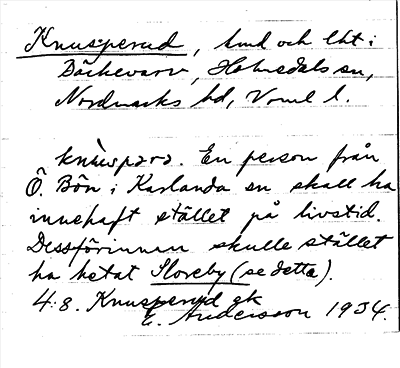 Knusperud, lmd och lht i
Bäckevarv, Holmedals sn,
Nordmarks hd, Vrml l.
knùspərə. En person från
Ö. Bön i Karlanda sn skall ha
innehaft stället på livstid.
Dessförinnan skulle stället
ha hetat Sloreby (se detta).
4:8. Knusperud gk
E. Andersson 1934.